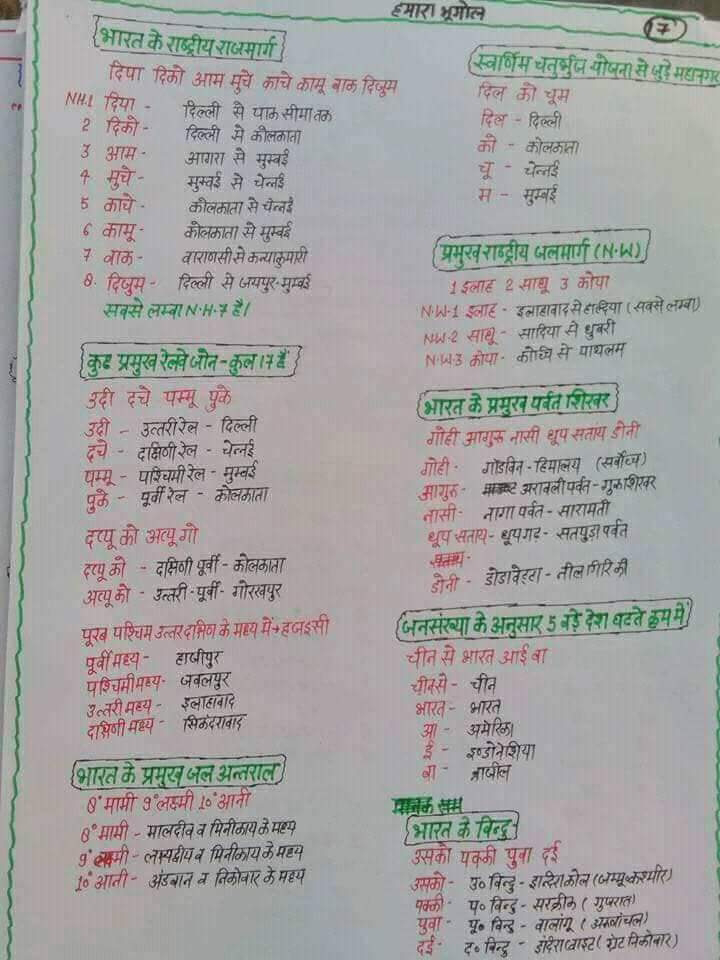 हमारा भूगोल
7
भारत के राष्ट्रीय राजमार्ग
दिपा दिको आम मुचे काचे कामू वाक दिजुम
NH.1 दिपा - दिल्ली से पाक सीमा तक
2 दिको - दिल्ली से कोलकाता
3 आम - आगरा से मुम्बई
4 मुचे - मुम्बई से चेन्नई
5 काचे - कोलकाता से चेन्नई
6 कामू - कोलकाता से मुम्बई
7 वाक - वाराणसी से कन्याकुमारी
8. दिजुम - दिल्ली से जयपुर-मुम्बई
सबसे लम्बा N.H.7 है।
कुछ प्रमुख रेलवे जोन - कुल 17 हैं
उदी दचे पम्मू पुके
उदी - उत्तरी रेल - दिल्ली
दचे - दक्षिणी रेल - चेन्नई
पम्मू - पश्चिमी रेल - मुम्बई
पुके - पूर्वी रेल - कोलकाता
दप्पू को अत्पू गो
दप्पू को - दक्षिणी पूर्वी - कोलकाता
अत्पू को - उत्तरी-पूर्वी - गोरखपुर
पूरब पश्चिम उत्तर दक्षिण के मध्य में → हजइसी
पूर्वी मध्य - हाजीपुर
पश्चिमी मध्य - जबलपुर
उत्तरी मध्य - इलाहाबाद
दक्षिणी मध्य - सिकंदराबाद
भारत के प्रमुख जल अन्तराल
8° मामी 9° लक्ष्मी 10° आनी
8° मामी - मालदीव व मिनीकाय के मध्य
9° लामी - लक्ष्यद्वीप व मिनीकाय के मध्य
10° आनी - अंडबान व निकोबार के मध्य
स्वर्णिम चतुर्भुज योजना से जुड़े महानगर
दिल को चूम
दिल - दिल्ली
को - कोलकाता
चू - चेन्नई
म - मुम्बई
प्रमुख राष्ट्रीय जलमार्ग (N.W)
1 इलाह 2 साधू 3 कोपा
N.W.1 इलाह - इलाहाबाद से हल्दिया (सबसे लम्बा)
NW.2 साधू - सादिया से धुबरी
N.W.3 कोपा - कोच्चि से पाथलम
भारत के प्रमुख पर्वत शिखर
गोही आगुरू नासी धूप सताय डोनी
गोही - गॉडविन - हिमालय (सर्वोच्च)
आगुरू - अरावली पर्वत - गुरूशिखर
नासी - नागा पर्वत - सारामती
धूप सताय - धूपगढ़ - सतपुड़ा पर्वत
डोनी - डोडाबेट्टा - नीलगिरि की
जनसंख्या के अनुसार 5 बड़े देश घटते क्रम में
चीन से भारत आई बा
चीन से - चीन
भारत - भारत
आ - अमेरिका
ई - इण्डोनेशिया
बा - ब्राजील
भारत के बिन्दु
उसको पक्की पुवा दई
उसको - उ० बिन्दु - इन्दिरा कोल (जम्मू-कश्मीर)
पक्की - प० बिन्दु - सरक्रीक (गुजरात)
पुवा - पू० बिन्दु - वालांगू (अरूणांचल)
दई - द० बिन्दु - इंदिरा प्वाइंट (ग्रेट निकोबार)